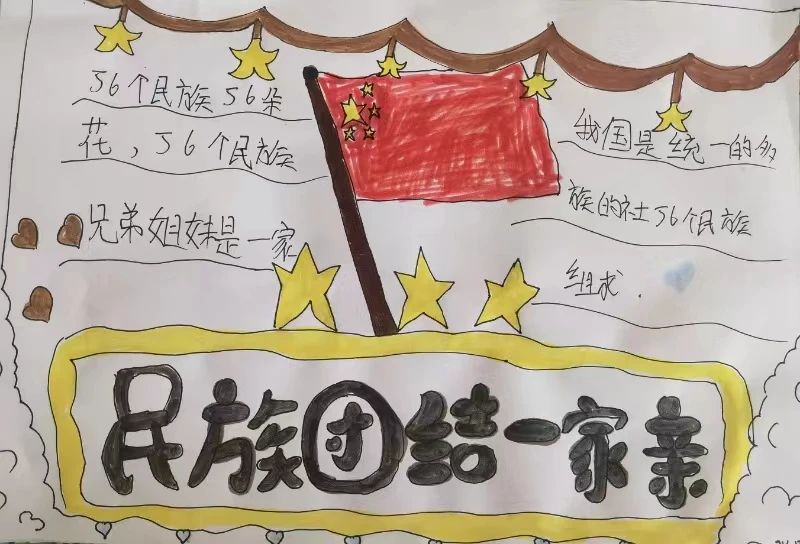 56个民族56朵
花，56个民族
兄弟姐妹是一家
我国是统一的多
族的社56个民族
组成.
民族团结一家亲